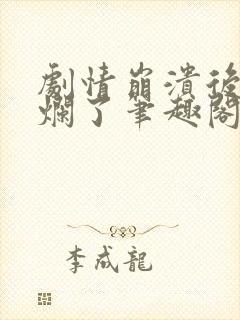 劇情崩潰後
爛了筆趣閣
李成龍